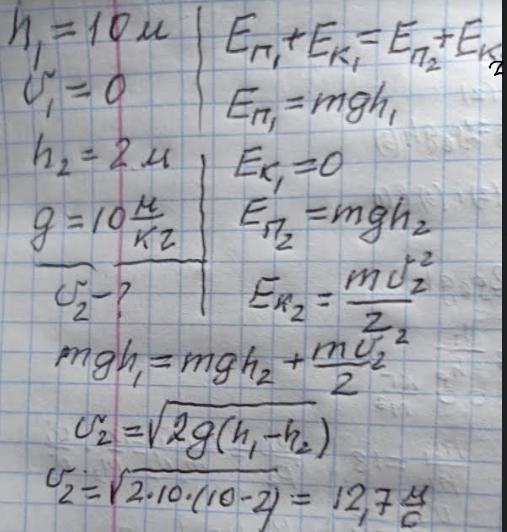 h₁ = 10 м
υ₁ = 0
h₂ = 2 м
g = 10 м/кг
υ₂ - ?
Eп₁ + Eк₁ = Eп₂ + Eк₂
Eп₁ = mgh₁
Eк₁ = 0
Eп₂ = mgh₂
Eк₂ = mυ₂²/2
mgh₁ = mgh₂ + mυ₂²/2
υ₂ = √(2g(h₁ - h₂))
υ₂ = √(2·10·(10-2)) = 12,7 м/с